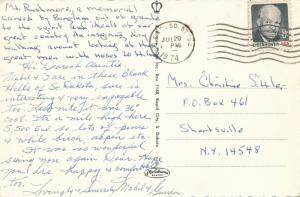 Mt. Rushmore, a memorial
carved by Borglum out of granite
to the spirit and ideals of our
great country. An inspiring
walking around looking at these
great men with noses 20 ft long.
Dearest Auntie,
Mabel & I are in these Black
Hills of So. Dakota, sure is
interesting & very enjoyable
too. Last nite got
cool. It's a mile high here
5,500 lots of pines
& white birch, aspen etc.
It was so wonderful
seeing you again Dear. Hope
you are happy & comfortable
too.
Lovingly & Sincerely Mabel &
SO
JUL 29
PM
1974
EISENHOWER
Mrs. Christine
P.O. Box 461
Shartlesville
N.Y. 14548
Rapid City, S. Dakota